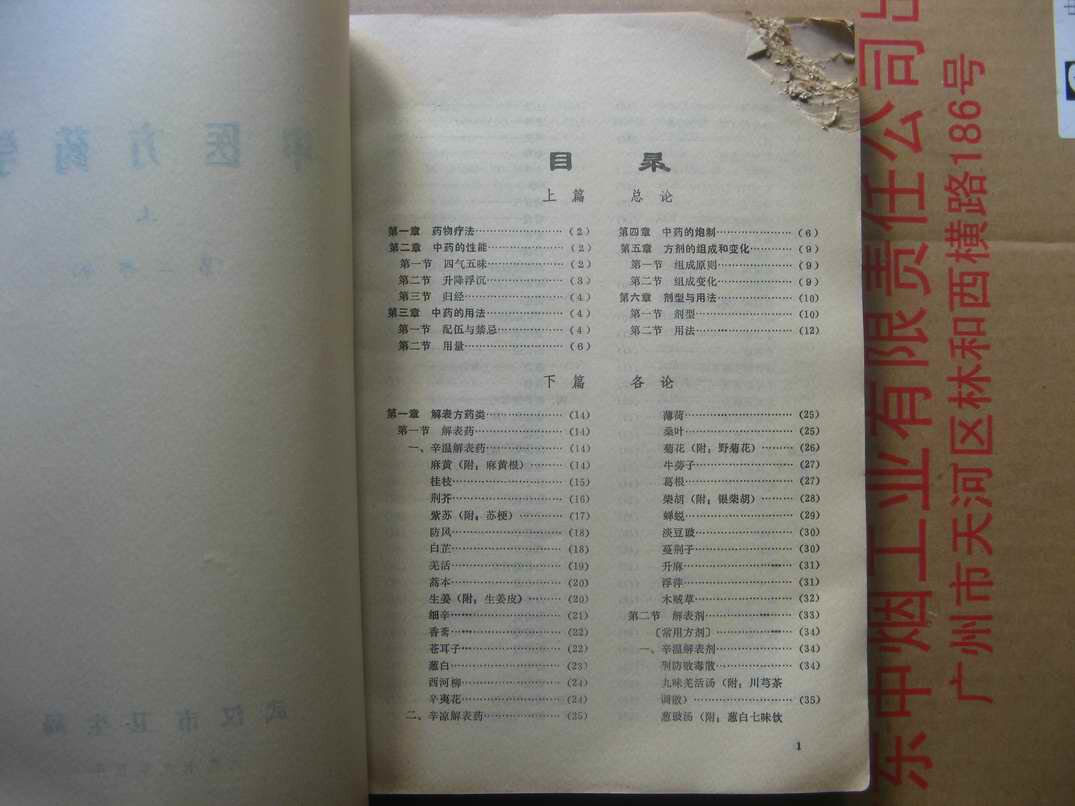 目 录
上 篇 总 论
第一章 药物疗法……………………(2)
第二章 中药的性能…………………(2)
第一节 四气五味…………………(2)
第二节 升降浮沉…………………(3)
第三节 归经………………………(4)
第三章 中药的用法…………………(4)
第一节 配伍与禁忌………………(4)
第二节 用量………………………(6)
第四章 中药的炮制…………………(6)
第五章 方剂的组成和变化…………(9)
第一节 组成原则…………………(9)
第二节 组成变化…………………(9)
第六章 剂型与用法…………………(10)
第一节 剂型………………………(10)
第二节 用法………………………(12)
下 篇 各 论
第一章 解表方药类…………………(14)
第一节 解表药……………………(14)
一、辛温解表药…………………(14)
麻黄(附:麻黄根)………(14)
桂枝……………………………(15)
荆芥……………………………(16)
紫苏(附:苏梗)…………(17)
防风……………………………(18)
白芷……………………………(18)
羌活……………………………(19)
藁本……………………………(20)
生姜(附:生姜皮)………(20)
细辛……………………………(21)
香薷……………………………(22)
苍耳子…………………………(22)
葱白……………………………(23)
西河柳…………………………(24)
辛夷花…………………………(24)
二、辛凉解表药…………………(25)
薄荷……………………………(25)
桑叶……………………………(25)
菊花(附:野菊花)………(26)
牛蒡子…………………………(27)
葛根……………………………(27)
柴胡(附:银柴胡)………(28)
蝉蜕……………………………(29)
淡豆豉…………………………(30)
蔓荆子…………………………(30)
升麻……………………………(31)
浮萍……………………………(31)
木贼草…………………………(32)
第二节 解表剂……………………(33)
〔常用方剂〕…………………(34)
一、辛温解表剂…………………(34)
荆防败毒散……………………(34)
九味羌活汤(附:川芎茶
调散)…………………………(35)
葱豉汤(附:葱白七味饮
1
医方药学
上
武汉市卫生局
东中烟工业有限责任公司
广州市天河区林和西横路186号